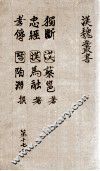 漢魏叢書
獨斷 漢 蔡邕 著
忠經 漢 馬融 著
孝傳 晉 陶潛 撰
第十七